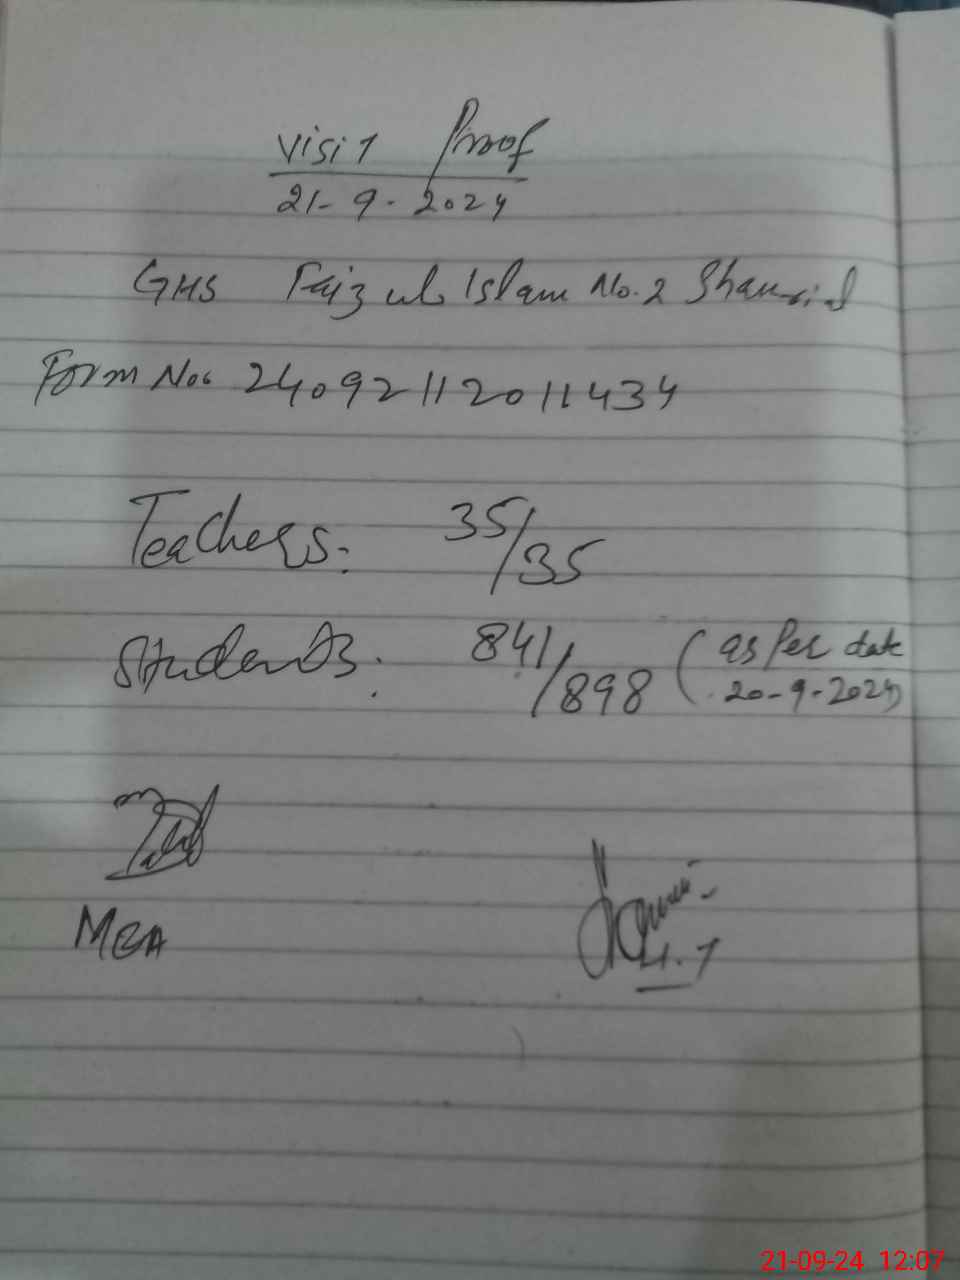 Visit Proof
21-9-2024
GHS Faiz ul Islam No.2
Form No. 24092112011434
Teachers: 35/35
Students: 841/898 (as per date
20-9-2024)
MEA
21-09-24 12:07